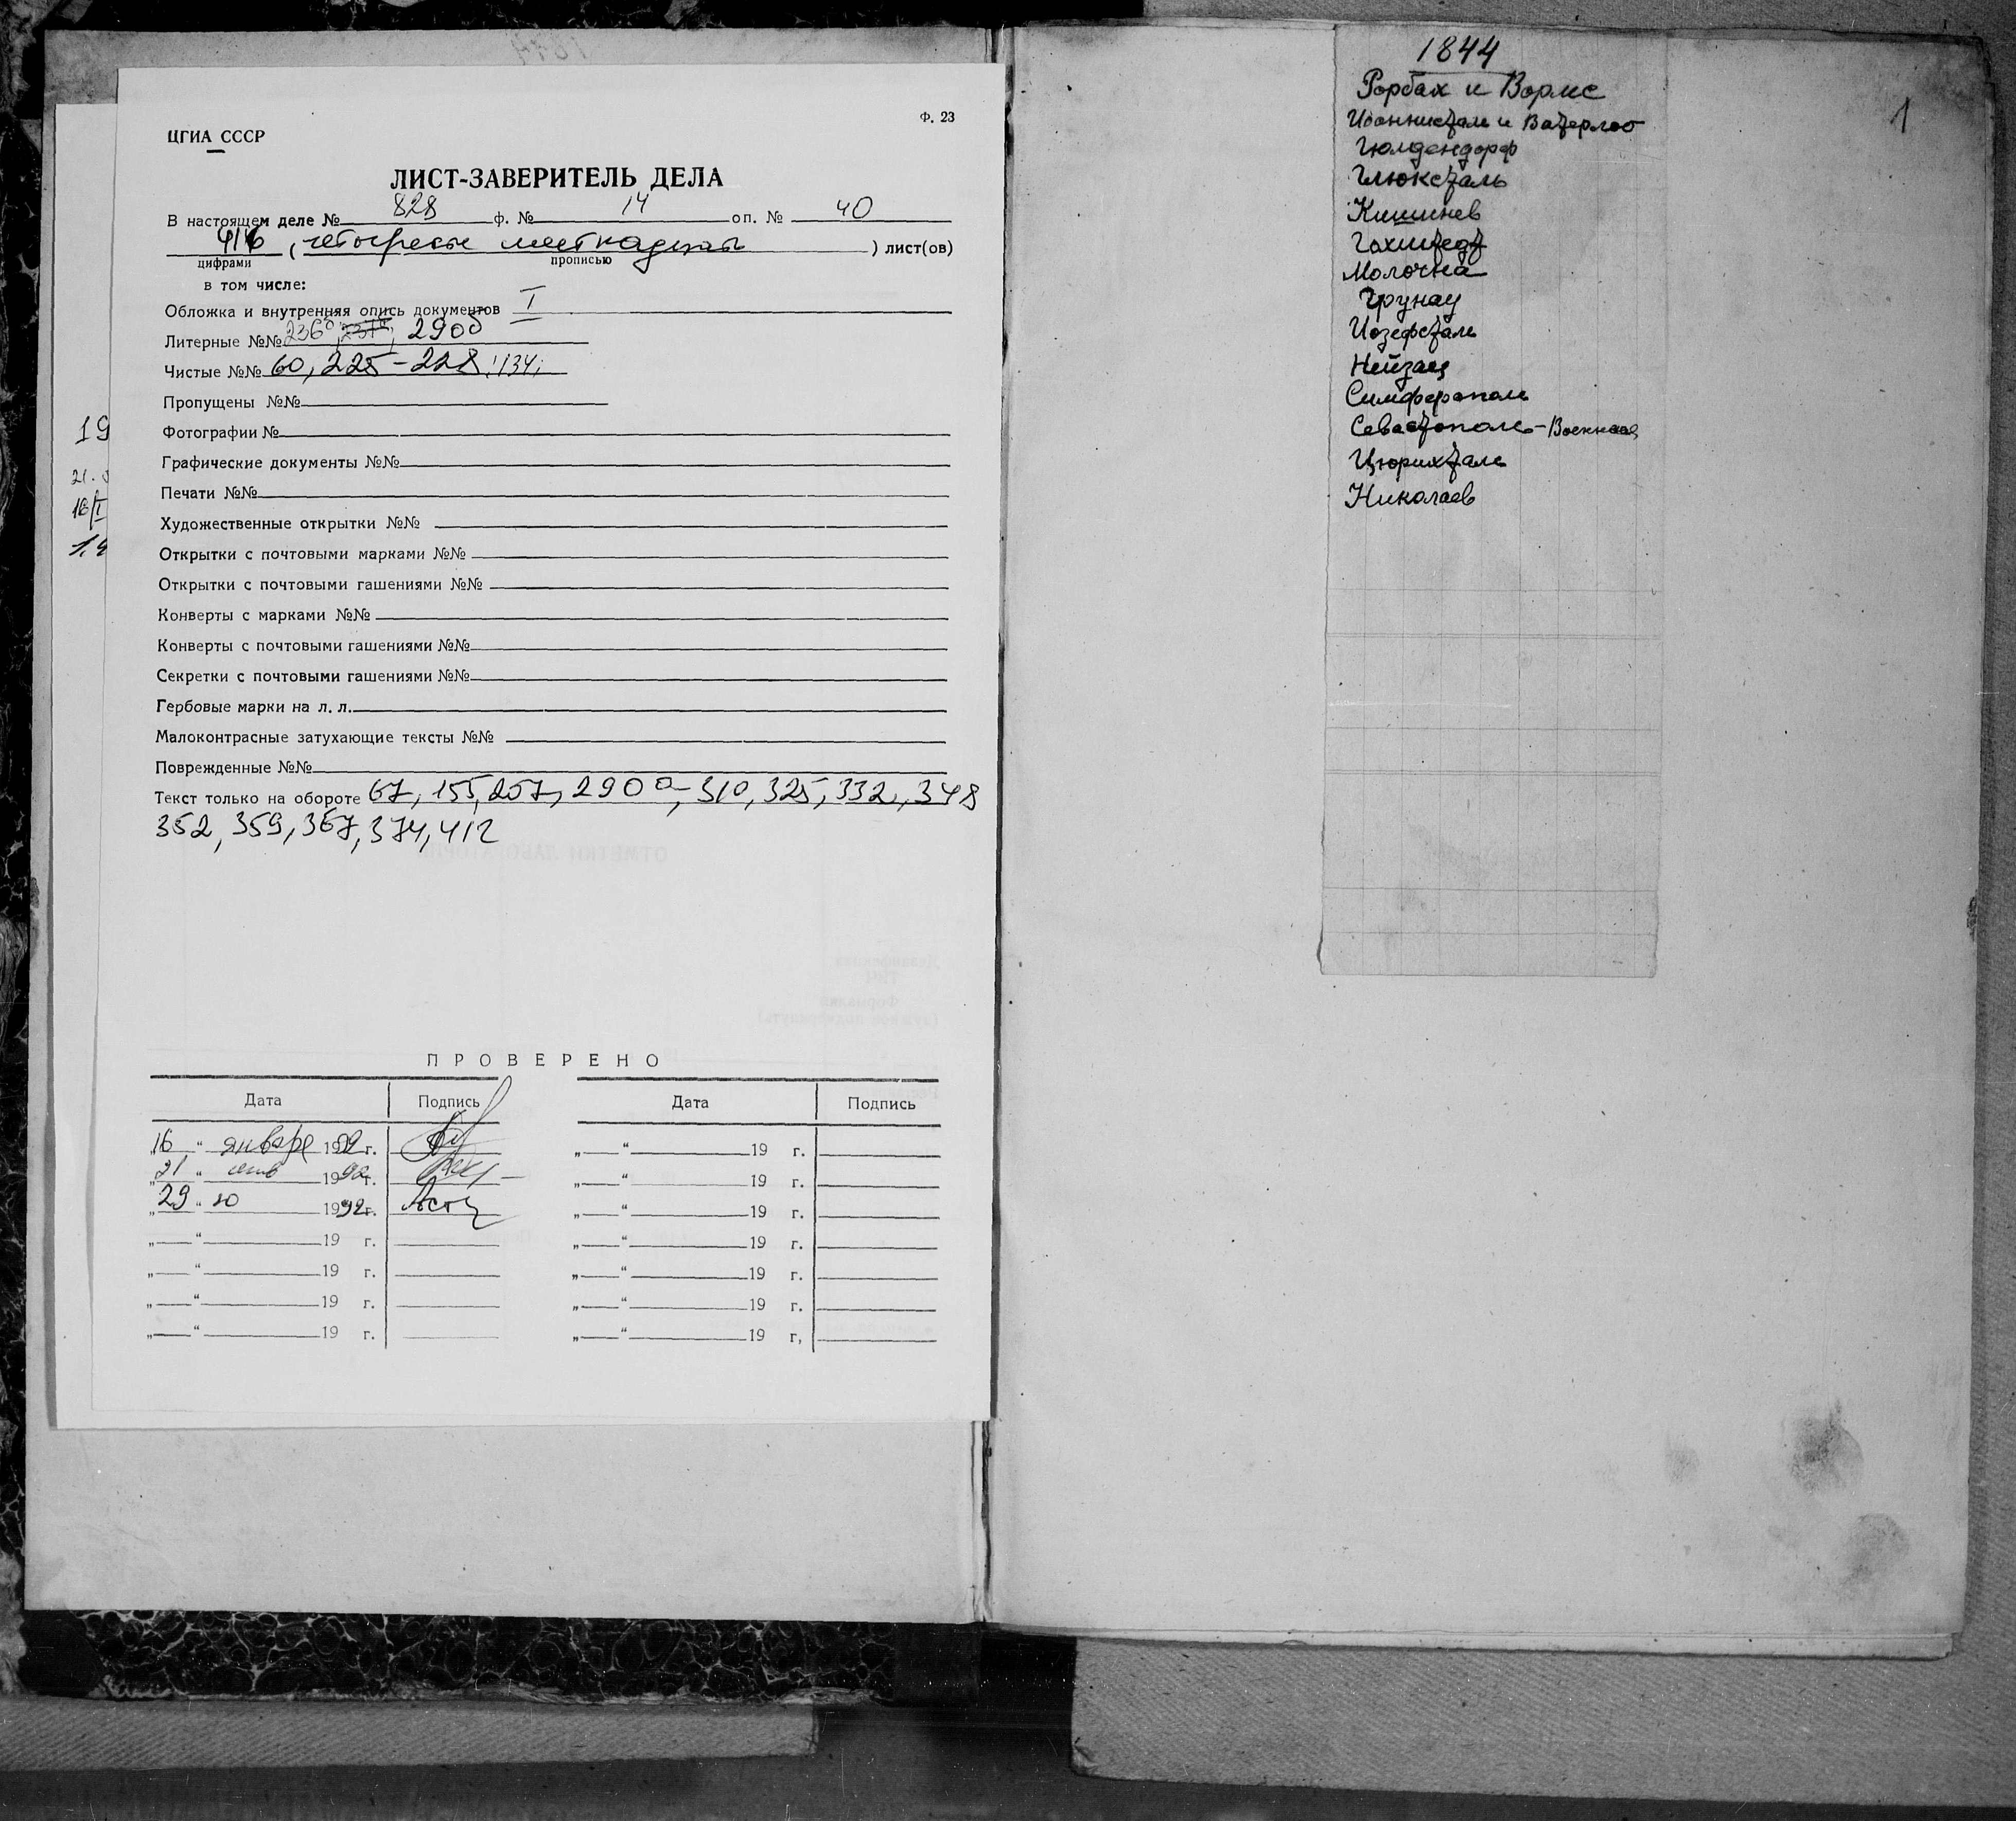 Ф. 23
ЦГИА СССР
ЛИСТ-ЗАВЕРИТЕЛЬ ДЕЛА
В настоящем деле № 828 ф. № 14 оп. № 40
416 (четыреста шестнадцать) лист(ов)
цифрами прописью
в том числе:
Обложка и внутренняя опись документов I
Литерные №№ 236а, 290б
Чистые №№ 60, 225-228; 134;
Пропущены №№
Фотографии №
Графические документы №№
Печати №№
Художественные открытки №№
Открытки с почтовыми марками №№
Открытки с почтовыми гашениями №№
Конверты с марками №№
Конверты с почтовыми гашениями №№
Секретки с почтовыми гашениями №№
Гербовые марки на л. л.
Малоконтрасные затухающие тексты №№
Поврежденные №№
Текст только на обороте 67, 155, 257, 290а, 310, 325, 332, 348
352, 359, 367, 374, 412
19
21.
16/I
1.4
ПРОВЕРЕНО
Дата Подпись Дата Подпись
„16“ января 1992 г. „ “ 19 г.
„21“ 1992 г. „ “ 19 г.
„29“ 1992 г. „ “ 19 г.
„ “ 19 г. „ “ 19 г.
„ “ 19 г. „ “ 19 г.
„ “ 19 г. „ “ 19 г.
„ “ 19 г. „ “ 19 г,
1844
1
Рорбах и Вормс
Иоаннисталь и Ватерлоо
Гюлдендорф
Глюксталь
Кишинев
Гохштедт
Молочна
Грунау
Иозефсталь
Нейзац
Симферополь
Севастополь-Военная
Цюрихталь
Николаев